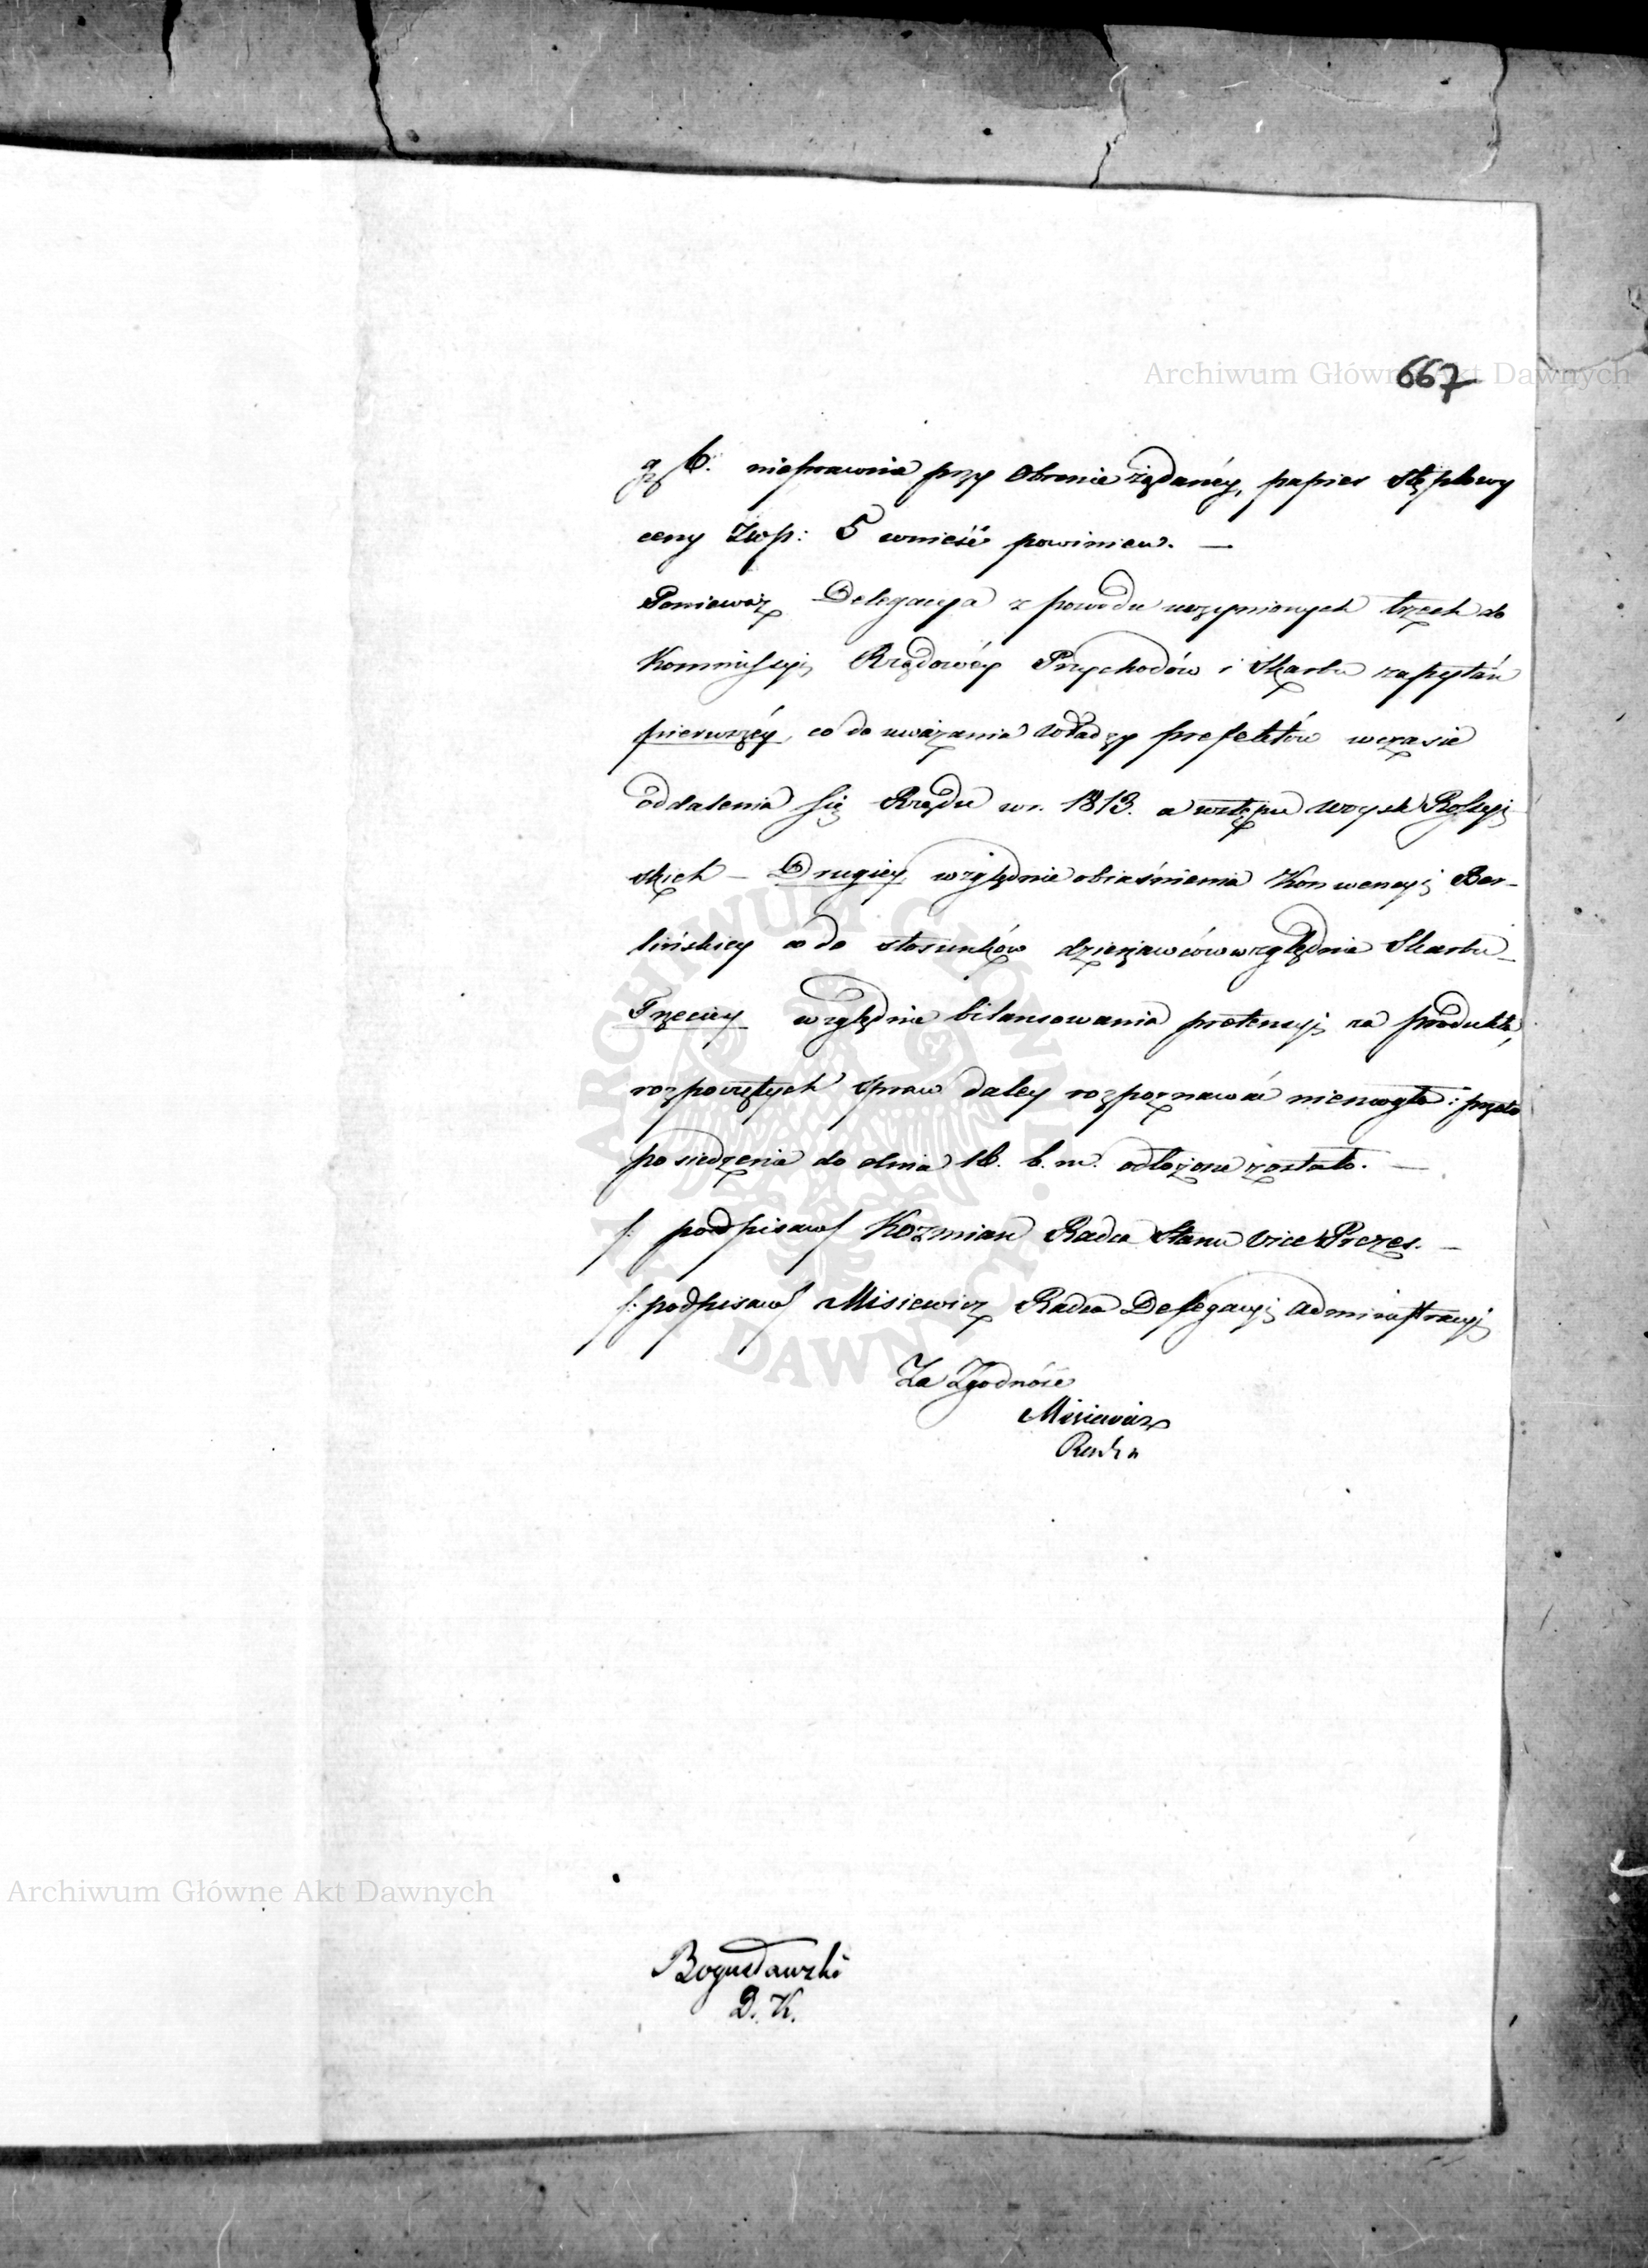 667
gr 6. nieprawnie przy obronie żądanéy, papier stęplowy
ceny Złłp: 5 wnieść powinien. —
Ponieważ Delegacya z powodu uczynionych trzech do
Kommissyi Rządowéy Przychodów i Skarbu zapytań
pierwszéy, co do uważania władzy prefektów w czasie
oddalenia się Rządu w r. 1813. a wstępu woysk Rossyi
skich — Drugiey względnie obiaśnienia Konwencyi Ber-
lińskiey co do stosunków dzierżawców względnie Skarbu —
Trzeciey względnie bilansowania pretensyi za produkta,
rozpoczętych spraw daley rozpoznawać niemogła: przeto
posiedzenie do dnia 16. b. m. odłożone zostało. —
/: podpisano/ Kozmian Radca Stanu Vice Prezes. —
/: podpisano/ Misiewicz Radca Delegacyi Administracyi
Za Zgodność
Misiewicz
Radca
Bogusławski
D. K.
Archiwum Główne Akt Dawnych
Archiwum Główne Akt Dawnych
ARCHIWUM GŁÓWNE AKT DAWNYCH